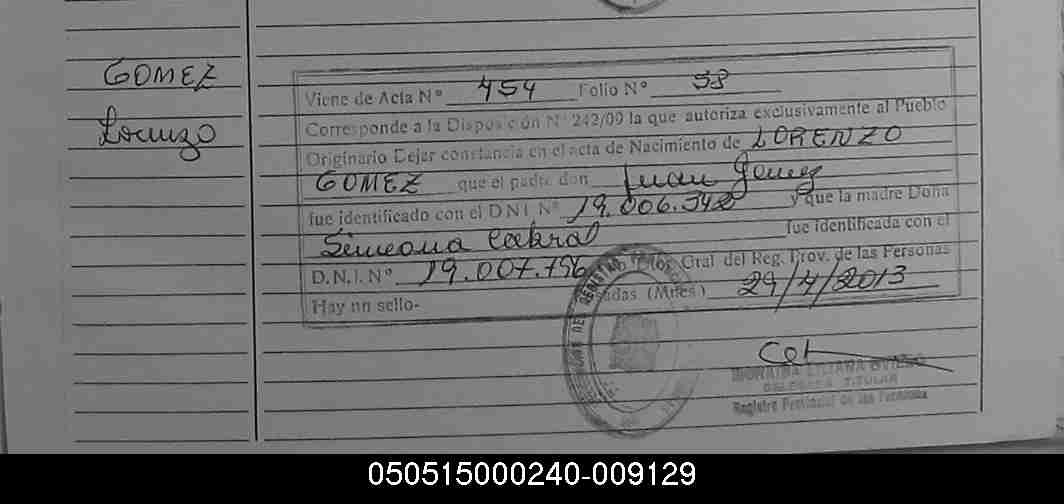 GOMEZ
Lorenzo
Viene de Acta N° 454 Folio N° 58
Corresponde a la Disposición N° 242/09 la que autoriza exclusivamente al Pueblo
Originario Dejar constancia en el acta de Nacimiento de LORENZO
GOMEZ que el padre don Juan Gomez
fue identificado con el D.N.I. N° 19.006.342 y que la madre Doña
Simeona Cabral fue identificada con el
D.N.I. N° 19.007.796 Gral del Reg. Prov. de las Personas
Hay un sello- Posadas (Mnes.) 29/4/2013
LILIANA OVIEDO
DELEGADA TITULAR
Registro Provincial de las Personas
050515000240-009129